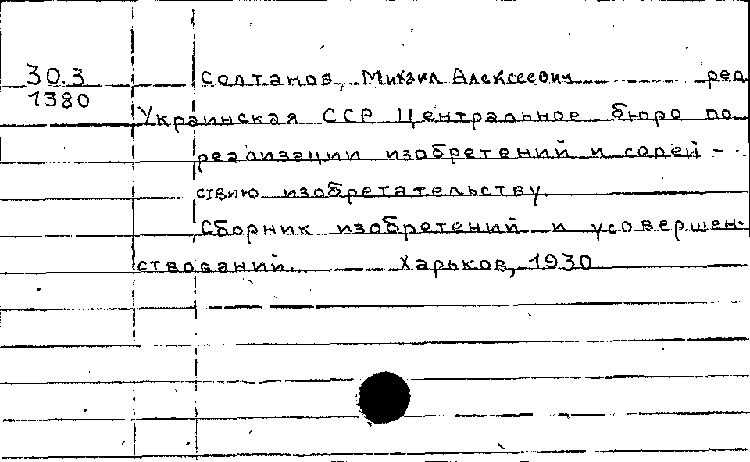 30.3 Солтанов, Михаил Алексеевич ред
1380
Украинская ССР Центральное бюро по
реализации изобретений и содей-
ствию изобретательству.
Сборник изобретений и усовершен-
ствований. Харьков, 1930